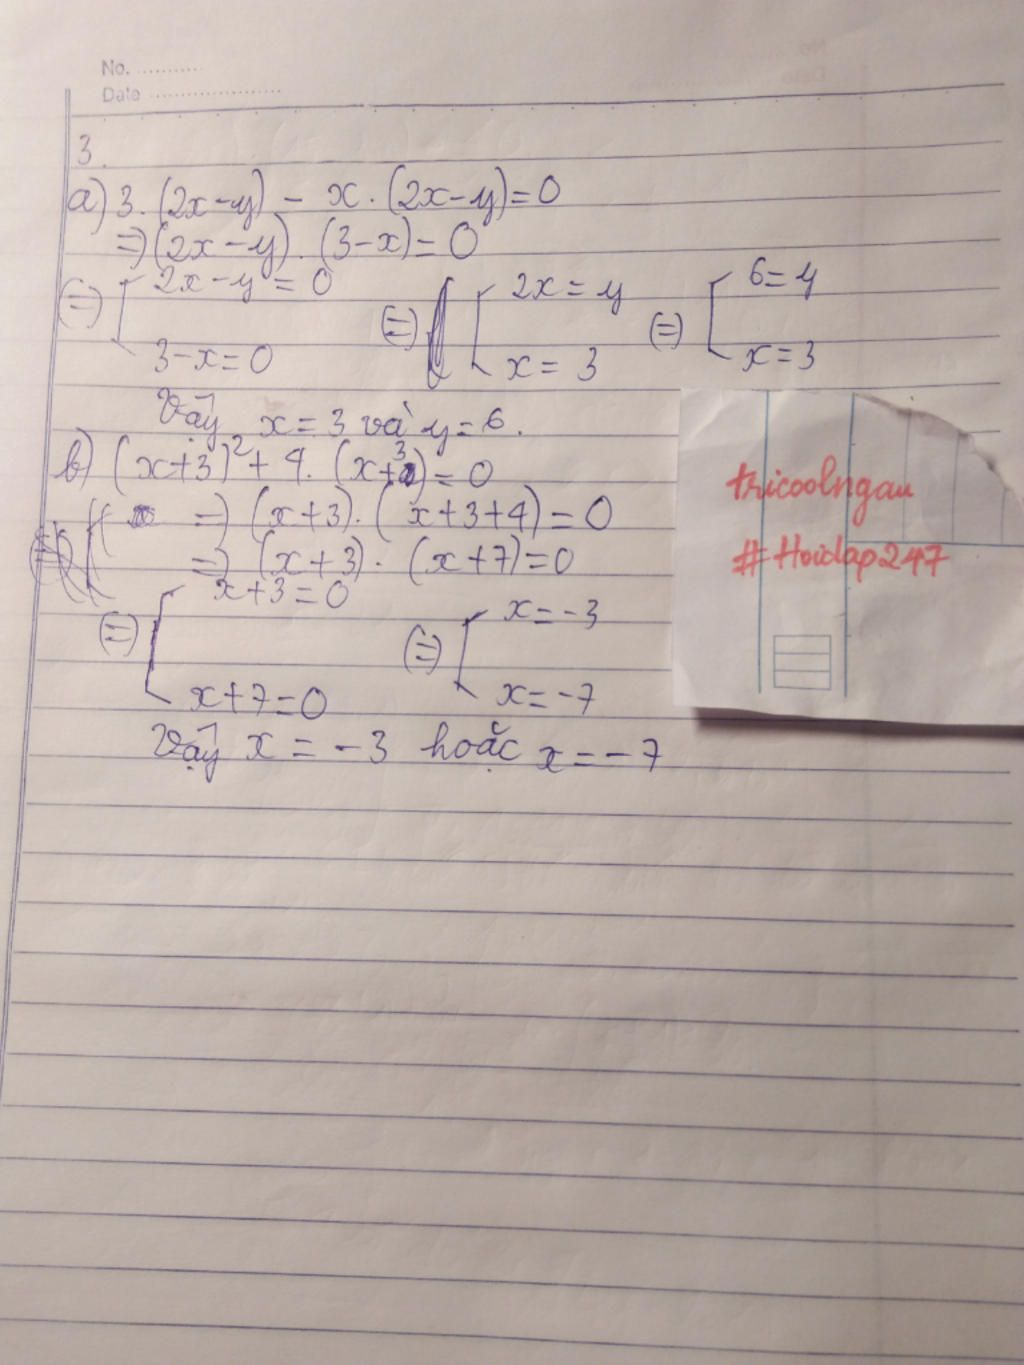 No. ...........
Date ......................
3.
a) 3. (2x-y) - x . (2x-y) = 0
=> (2x-y) . (3-x) = 0
(=) [ 2x-y = 0 (=) [ 2x = y (=) [ 6 = y
3-x = 0 x = 3 x = 3
Vậy x = 3 và y = 6.
b) (x+3)² + 4. (x+3) = 0
=) (x+3). (x+3+4) = 0
=) (x+3) . (x+7) = 0
(=) [ x+3 = 0 (=) [ x = -3
x+7 = 0 x = -7
Vậy x = -3 hoặc x = -7
tricoolngau
#Hoidap247